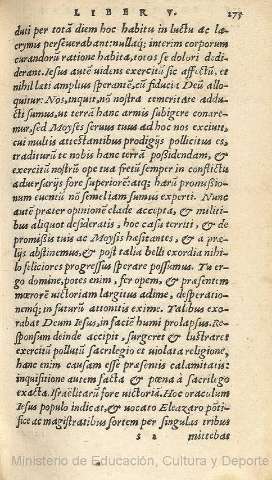 LIBER V. 275
duti per totã diem hoc habitu in luctu ac la-
crymis perseverabant: nullaq; interim corporum
curandorũ ratione habita, totos se dolori dedi-
derant. Iesus autẽ videns exercitũ sic affectũ, et
nihil læti amplius sperantẽ, cũ fiducia Deũ allo-
quitur: Nos, inquit, nõ nostra temeritate addu-
cti sumus, ut terrã hanc armis subigere conare-
mur, sed Moyses servus tuus ad hoc nos exciuit,
cui multis attestantibus prodigijs pollicitus es,
traditurũ te nobis hanc terrã possidendam, &
exercitũ nostrũ ope tua fretũ semper in conflictu
aduersarijs fore superiorẽ: atq; harũ promissio-
num euentũ nõ semel iam sumus experti. Nunc
autẽ præter opinionẽ clade accepta, & militi-
bus aliquot desideratis, hoc casu territi, & de
promissis tuis ac Moysis hæsitantes, & à præ-
lijs abstinemus, & post talia belli exordia nihi-
lo feliciores progressus sperare possumus. Tu er-
go domine, potes enim, fer opem, & præsentem
mœrorẽ uictoriam largitus adime, desperatio-
nemq; in futurũ attonitis exime. Talibus exo-
rabat Deum Iesus, in faciẽ humi prolapsus. Re-
sponsum deinde accipit, surgeret & lustraret
exercitũ pollutũ sacrilegio et uiolata religione,
hanc enim causam esse præsentis calamitatis:
inquisitione autem facta & pœna à sacrilego
exacta, Israëlitarũ fore uictoriã. Hoc oraculum
Iesus populo indicat, & uocato Eleazaro põti-
fice ac magistratibus sortem per singulas tribus
s 2 mittebat
Ministerio de Educación, Cultura y Deporte